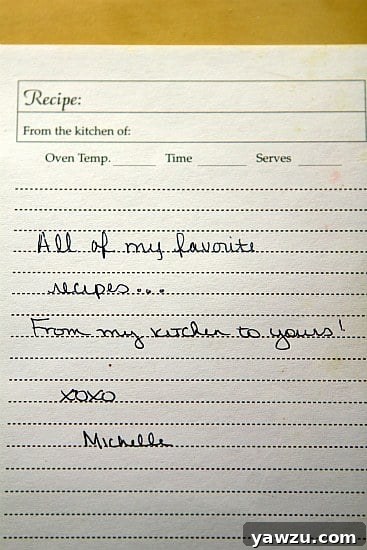 Recipe:
From the kitchen of:
Oven Temp. ______ Time ______ Serves ______
All of my favorite
recipes...
From my kitchen to yours!
xoxo
Michelle
yawzu.com